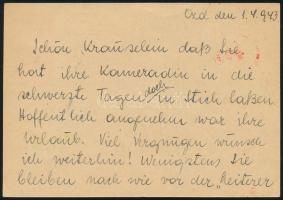 Ozd den 1.4.943
Schön Kräuselein daß Sie
hort ihre Kameradin in die
schwerzte Tagen doch in Stich laßen.
Hoffentlich angenehm war ihre
Urlaub. Viel Vergnugen wünsch
ich weiterhin! Wenigstens Sie
bleiben nach wie vor der „Reiterer